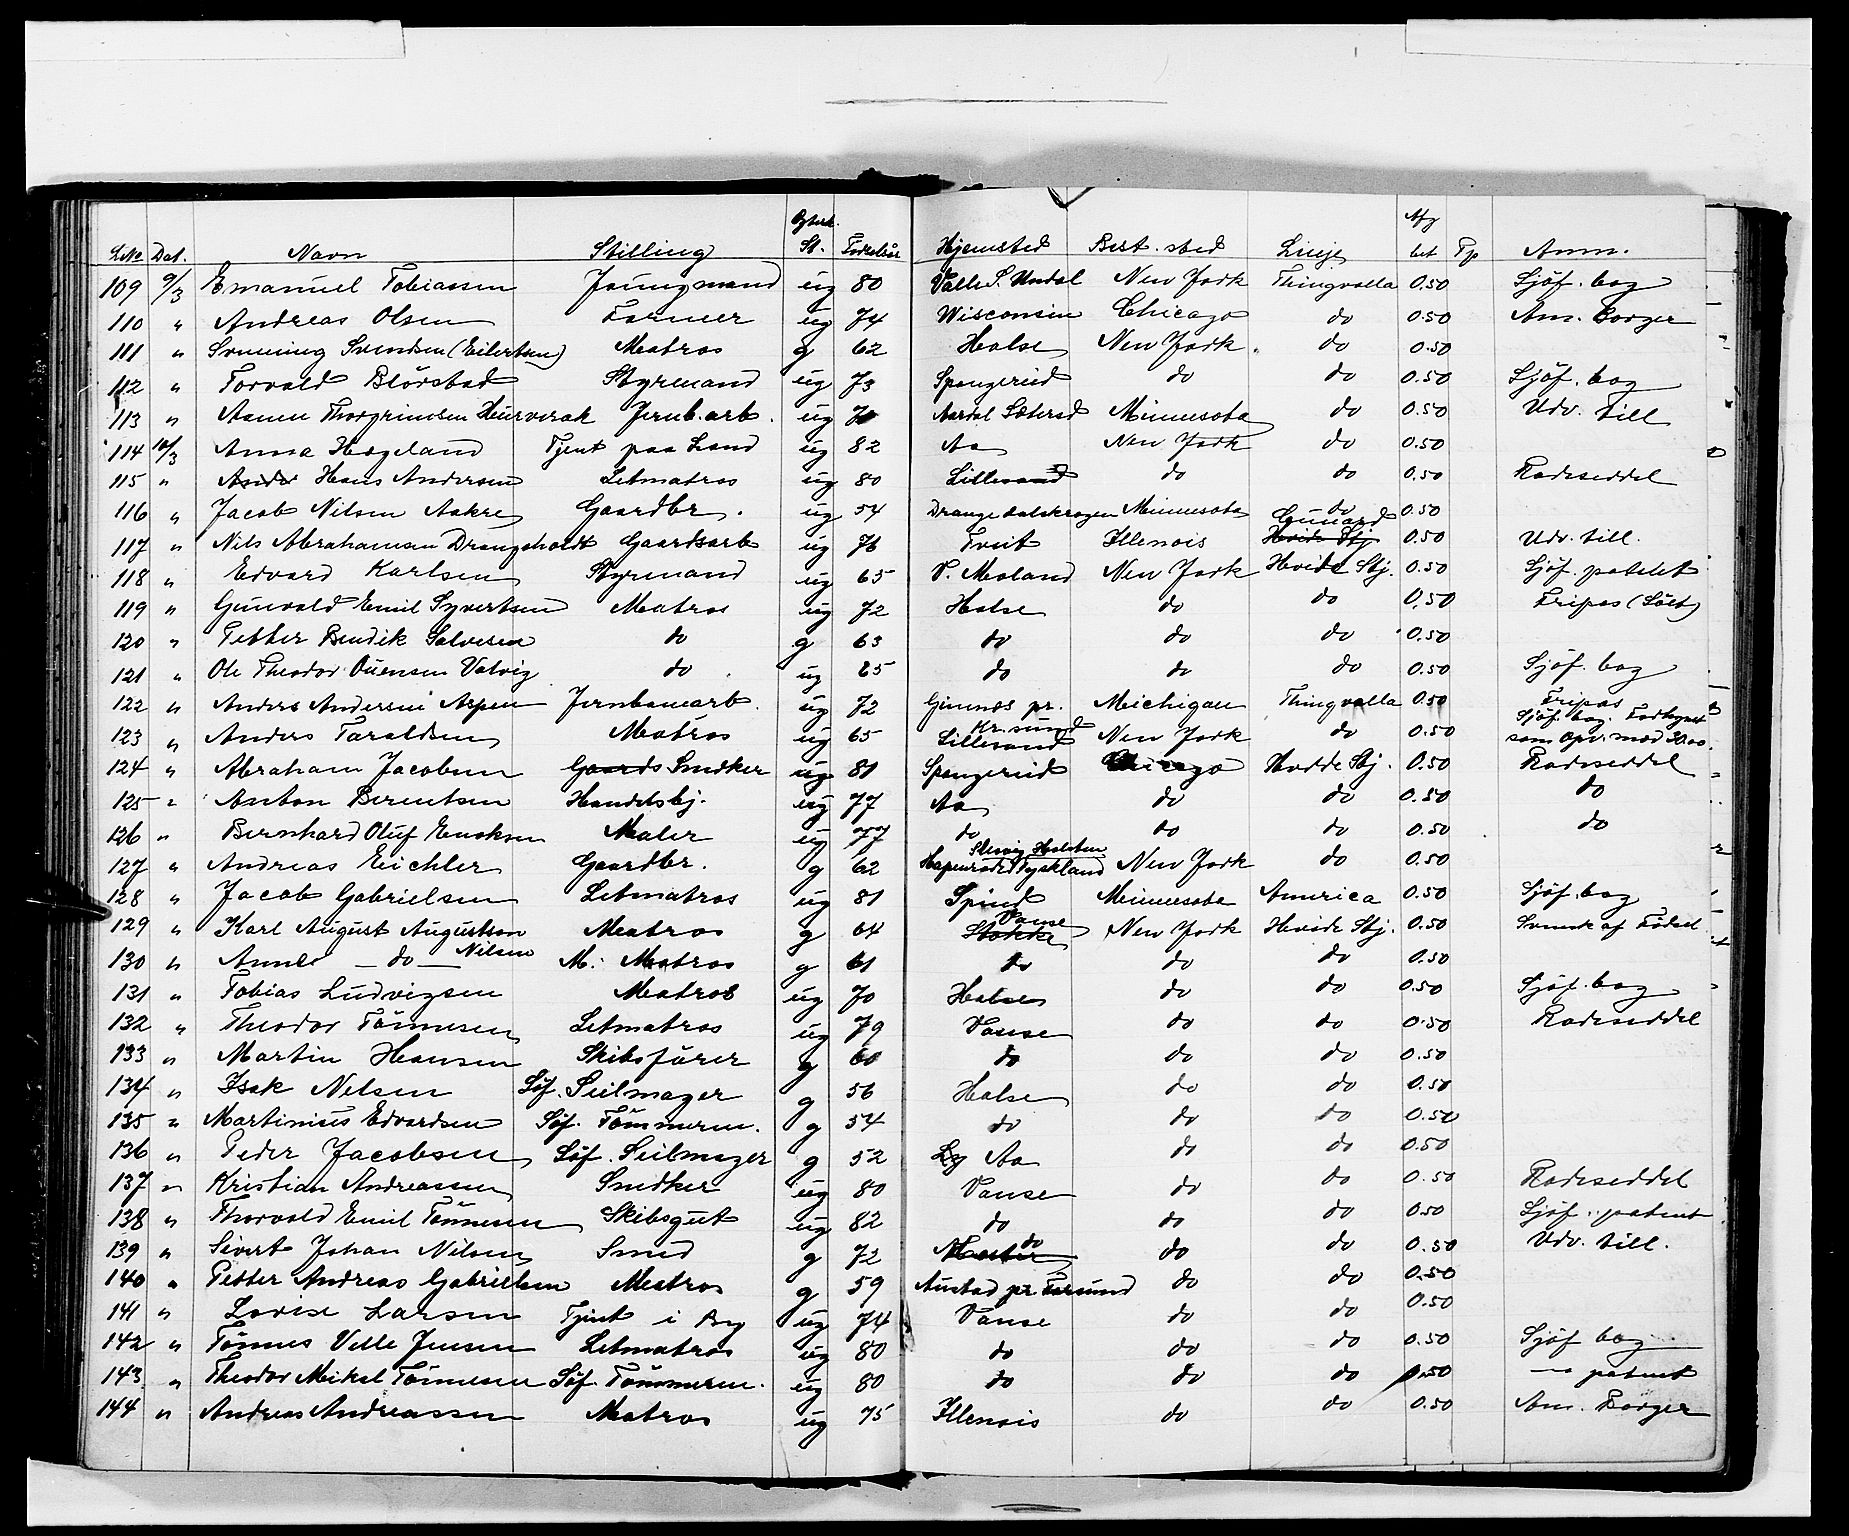 LNo Dat. Navn Stilling Ægtesk. St. Fødselsår Hjemsted Best. sted Linje Afg bet Fp Anm.
109 9/3 Emanuel Tobiassen Jüngmand ug 80 Valle S. Undal New York Thingvalla 0.50 Sjöf. bog
110 " Andreas Olsen Farmer ug 74 Wisconsin Chicago do 0.50 Am. Borger
111 " Svenning Svendsen (Eilertsen) Matros g 62 Halse New York do 0.50
112 " Torvald Blörstad Styrmand ug 73 Spangereid do do 0.50 Sjöf. bog
113 " Aanen Thorgrimsen Jernb. arb. ug 70 Aardal Sætersd Minnesota do 0.50 Udv. till
114 10/3 Anna Hægeland Tjent paa Land ug 82 Aa New York do 0.50
115 " Ander Hans Andersen Letmatros ug 80 Lillesand do do 0.50 Radeseddel
116 " Jacob Nilsen Aakre Gaardbr. ug 54 Drangedalskragen Minnesota do 0.50
117 " Nils Abrahamsen Drangsholdt Gaardsarb ug 76 Tveit Illenois Cunard Hvide Stj 0.50 Udv. till.
118 " Edvard Karlsen Styrmand ug 65 V. Moland New York Hvide Stj. 0.50 Sjöf. patent
119 " Gunvald Emil Syvertsen Matros ug 72 Halse do do 0.50 Fripas (Söet)
120 " Petter Bendik Salvesen do g 63 do do do 0.50
121 " Ole Theodor Ouensen Valvig do ug 65 do do do 0.50 Sjöf. bog
122 " Anders Andersen Aspen Jernbanearb. ug 72 Gimnæs pr. Kr.sund Michigan Thingvalla 0.50 Fripas
123 " Anders Taraldsen Matros ug 65 Lillesand New York do 0.50 Sjöf. bog. som opv. med
124 " Abraham Jacobsen Gaards Snedker ug 81 Spangereid Chicago Hvide Stj. 0.50 Radeseddel
125 " Anton Berentsen Handelsbj. ug 77 Aa do do 0.50 do
126 " Bernhard Oluf Enoksen Maler ug 77 do do do 0.50 do
127 " Andreas Eichler Gaardbr. g 62 Slesvig Holsten Tyskland New York do 0.50
128 " Jacob Gabrielsen Letmatros ug 81 Spind Minnesota America 0.50 Sjöf. bog
129 " Karl August Augustson Matros g 64 Stokke Vanse New York Hvide Stj. 0.50 Svensk af Födsel
130 " Anne — do — Nilsen M. Matros g 61 do do do 0.50
131 " Tobias Ludvigsen Matros ug 70 Halse do do 0.50 Sjöf. bog
132 " Theodor Tönnesen Letmatros ug 79 Vanse do do 0.50 Radeseddel
133 " Martin Hansen Skibsförer g 60 do do do 0.50
134 " Isak Nelsen Söf. Seilmager g 56 Halse do do 0.50
135 " Martinius Edvardsen Söf. Tömmerm. g 54 do do do 0.50
136 " Peder Jacobsen Söf. Seilmager g 52 Ly Aa do do 0.50
137 " Kristian Andreassen Snedker ug 80 Vanse do do 0.50 Radeseddel
138 " Thorvald Emil Tönnesen Skibsgut ug 82 do do do 0.50 Sjöf. patent
139 " Sivert Johan Nilsen Smed g 72 do do do 0.50 Udv. till.
140 " Petter Andreas Gabrielsen Matros g 59 Austad pr. Farsund do do 0.50
141 " Lovise Larsen Tjent i By ug 74 Vanse do do 0.50
142 " Tönnes Velle Jensen Letmatros ug 80 do do do 0.50 Sjöf bog
143 " Theodor Mikal Tönnesen Söf. Tömmerm. ug 80 do do do 0.50 — patent
144 " Andreas Andreassen Matros ug 75 Illenois do do 0.50 Am. Borger